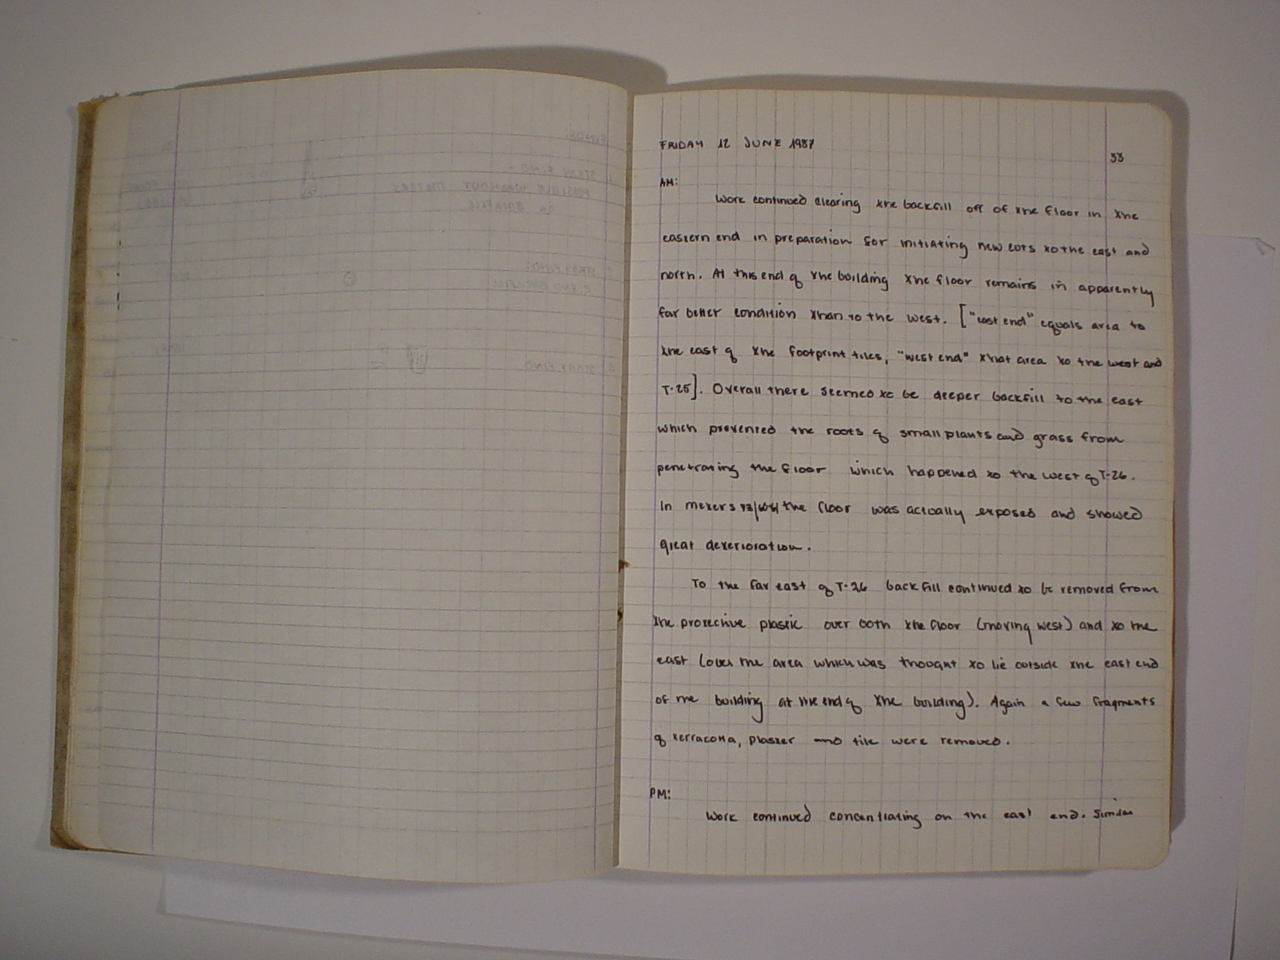 FRIDAY 12 JUNE 1987
33
AM:
Work continued clearing the backfill off of the floor in the
eastern end in preparation for initiating new cots to the east and
north. At this end of the building the floor remains in apparently
far better condition than to the west. ["east end" equals area to
the east of the footprint tiles, "west end" that area to the west and
T-25]. Overall there seemed to be deeper backfill to the east
which prevented the roots of small plants and grass from
penetrating the floor which happened to the west of T-26.
In meters the floor was actually exposed and showed
great deterioration.
To the far east of T-26 backfill continued to be removed from
the protective plastic over both the floor (moving west) and to the
east (over the area which was thought to lie outside the east end
of the building at the end of the building). Again a few fragments
of terracotta, plaster and tile were removed.
PM:
Work continued concentrating on the east end. Similar